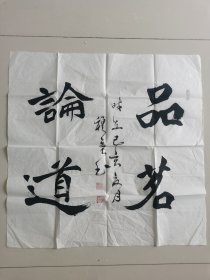 品茗
論道
時在己亥夏月